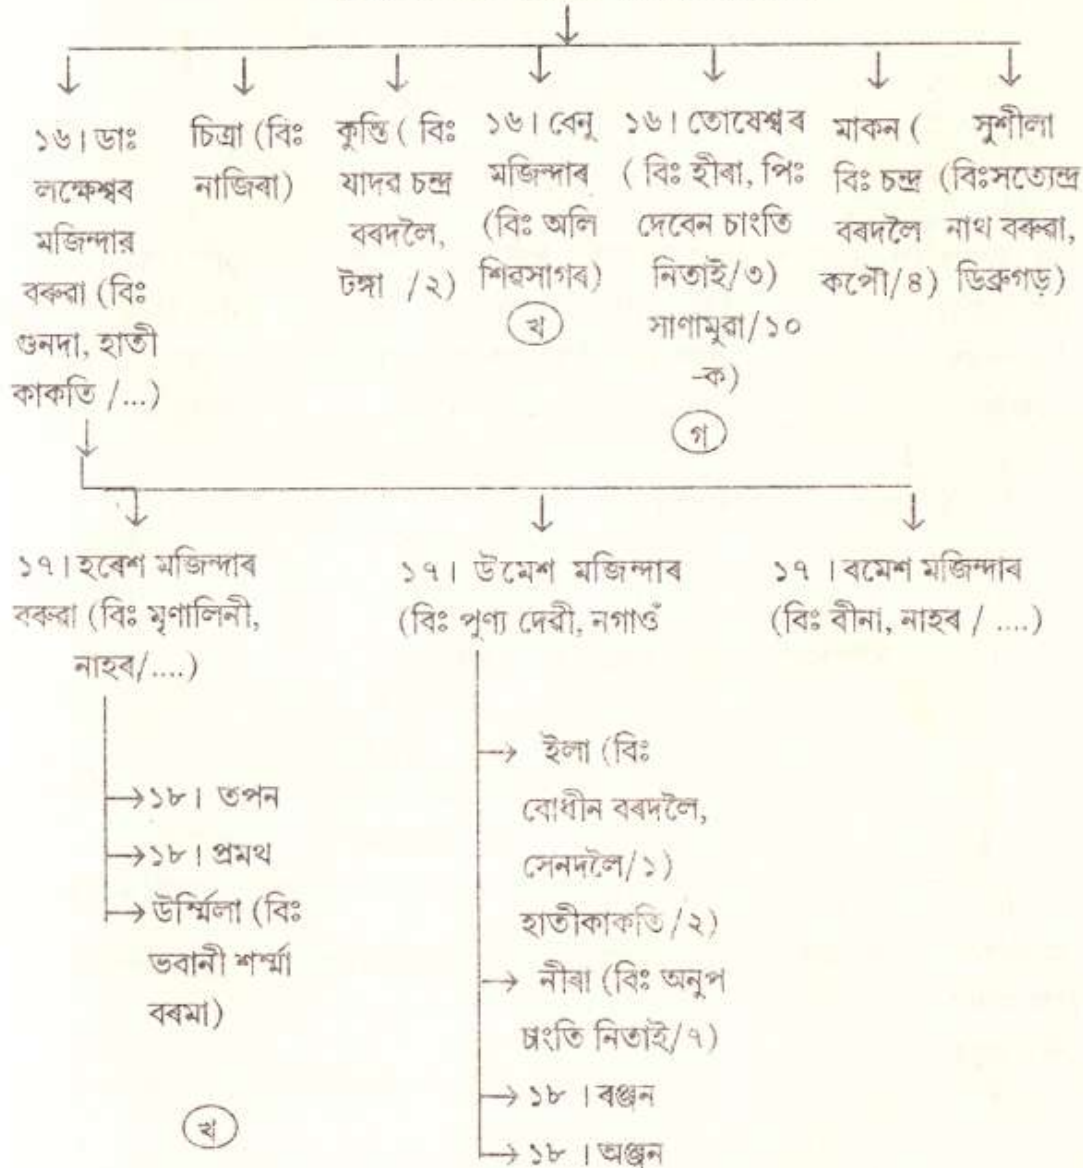 ১৬। ডাঃ
লক্ষেশ্বৰ
মজিন্দাৰ
বৰুৱা (বিঃ
গুনদা, হাতী
কাকতি /...)
চিত্ৰা (বিঃ
নাজিৰা)
কুন্তি ( বিঃ
যাদৱ চন্দ্ৰ
বৰদলৈ,
টঙ্গা /২)
১৬। বেনু
মজিন্দাৰ
(বিঃ অলি
শিৱসাগৰ)
খ
১৬। তোষেশ্বৰ
( বিঃ হীৰা, পিঃ
দেবেন চাংতি
নিতাই/৩)
সাণামুৱা/১০
-ক)
গ
মাকন (
বিঃ চন্দ্ৰ
বৰদলৈ
কপৌ/৪)
সুশীলা
(বিঃসত্যেন্দ্ৰ
নাথ বৰুৱা,
ডিব্ৰুগড়)
১৭। হৰেশ মজিন্দাৰ
বৰুৱা (বিঃ মৃণালিনী,
নাহৰ/....)
১৮। তপন
১৮। প্ৰমথ
উৰ্ম্মিলা (বিঃ
ভবানী শৰ্ম্মা
বৰমা)
খ
১৭। উমেশ মজিন্দাৰ
(বিঃ পূণ্য দেৱী, নগাওঁ
ইলা (বিঃ
বোধীন বৰদলৈ,
সেনদলৈ/১)
হাতীকাকতি/২)
নীৰা (বিঃ অনুপ
চাংতি নিতাই/৭)
১৮ । ৰঞ্জন
১৮ । অঞ্জন
১৭ । ৰমেশ মজিন্দাৰ
(বিঃ বীনা, নাহৰ / ....)